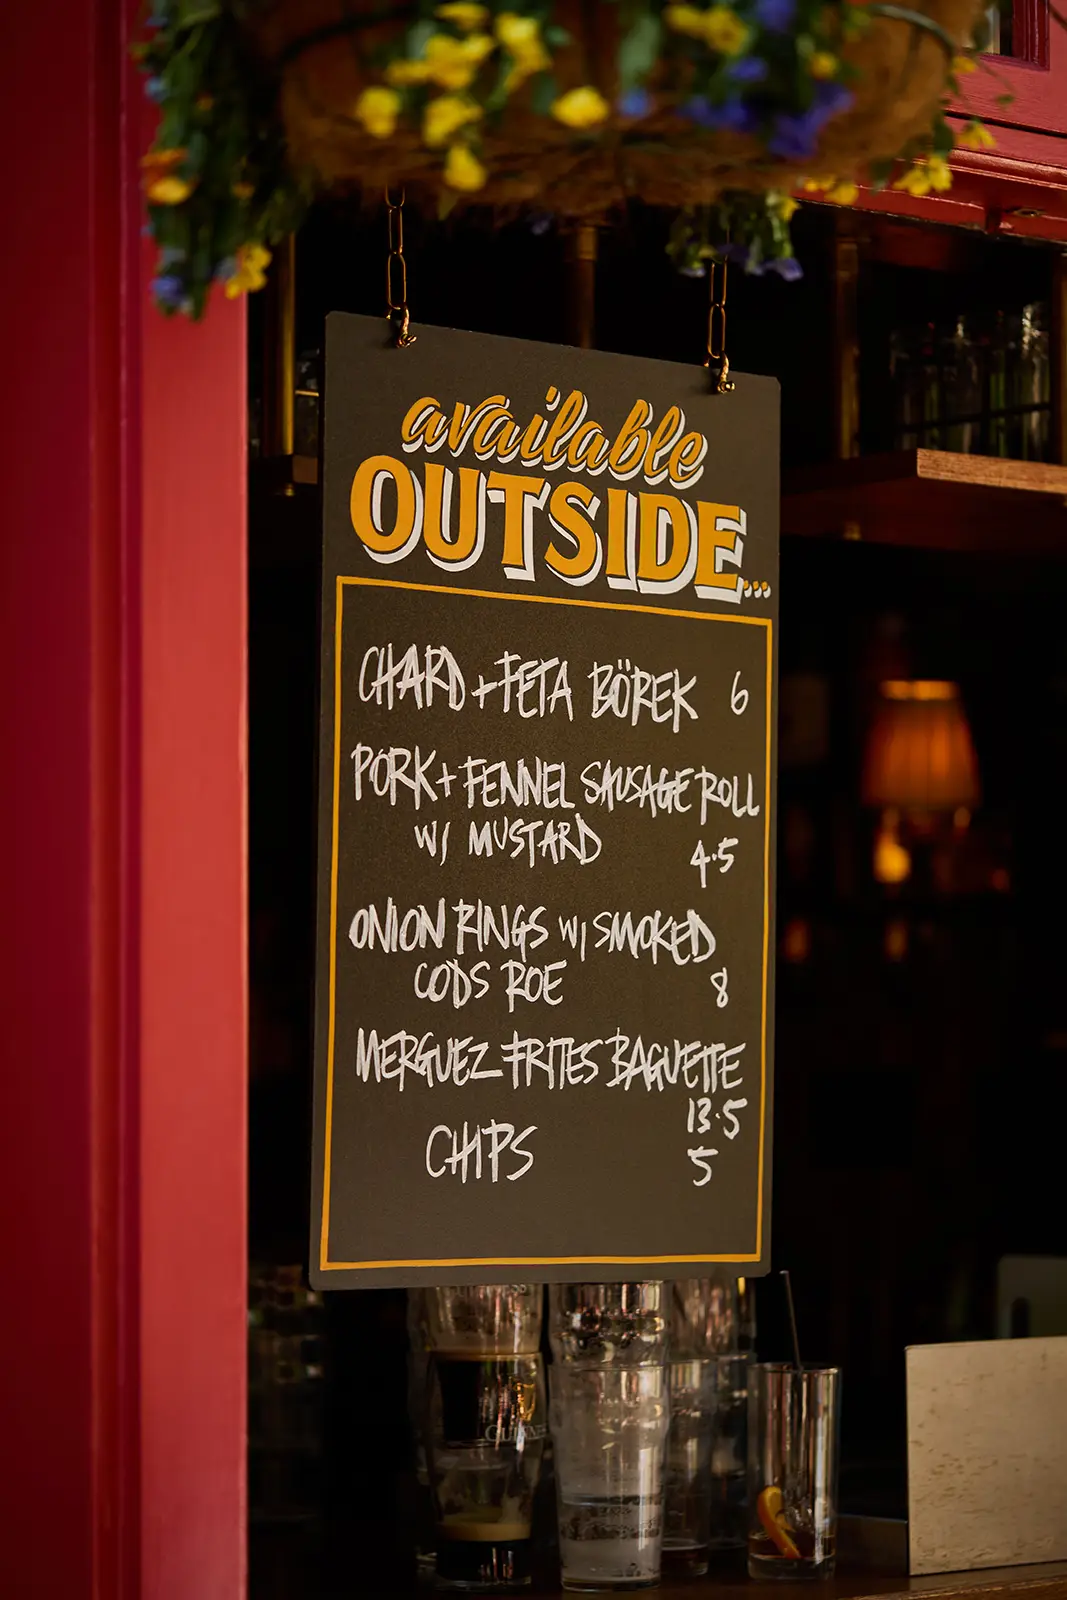 available
OUTSIDE...
CHARD + FETA BÖREK 6
PORK + FENNEL SAUSAGE ROLL
W/ MUSTARD 4.5
ONION RINGS W/ SMOKED
CODS ROE 8
MERGUEZ FRITES BAGUETTE
13.5
CHIPS 5